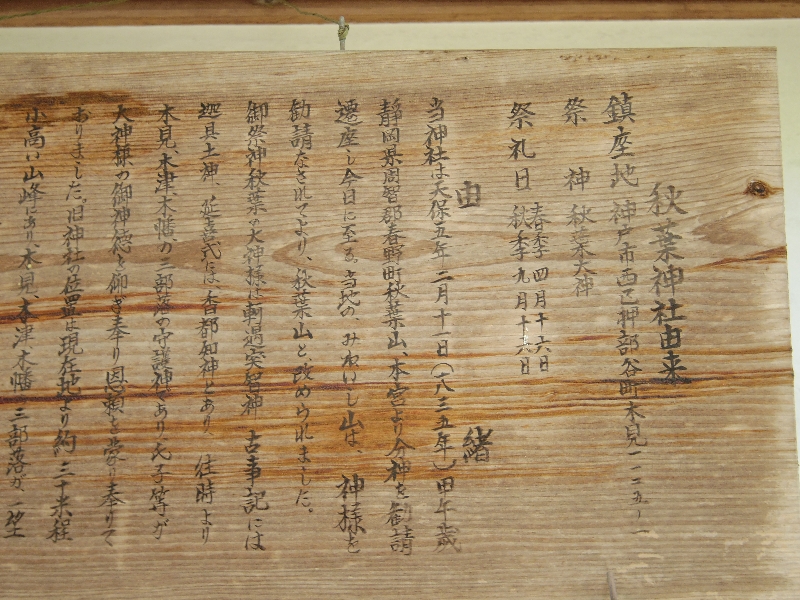 秋葉神社由来
鎮座地 神戸市西区押部谷町木見一一二五ノ一
祭神 秋葉大神
祭礼日 春季四月十六日
秋季九月十六日
由緒
当神社は天保五年二月十一日(一八三五年)甲午歳
静岡県周智郡春野町秋葉山、本宮より分神を勧請
遷座し今日に至る。当地の、みかいし山は、神様を
勧請なされてより、秋葉山と、改められました。
御祭神秋葉の大神様は軻遇突智神 古事記には
迦具土神、延喜式には香都知神とあり、往時より
木見、木津木幡の三部落の守護神であり、氏子等が
大神様の御神徳を仰ぎ奉り恩頼を受け奉りて
おりました。旧神社の位置は現在地より約、三十米程
小高い山峰にあり、木見、木津木幡の三部落が、一望